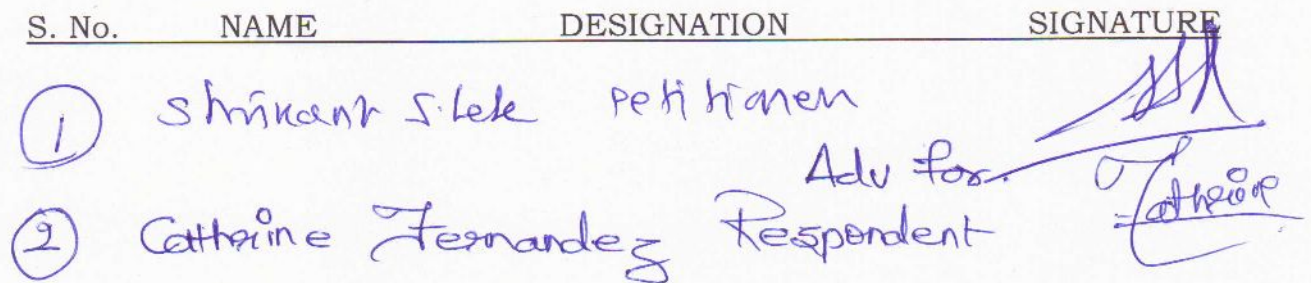 S. No. NAME DESIGNATION SIGNATURE
1 Shrikant S. Lele Petitioner
Adv for
2 Catherine Fernandez Respondent Catherine